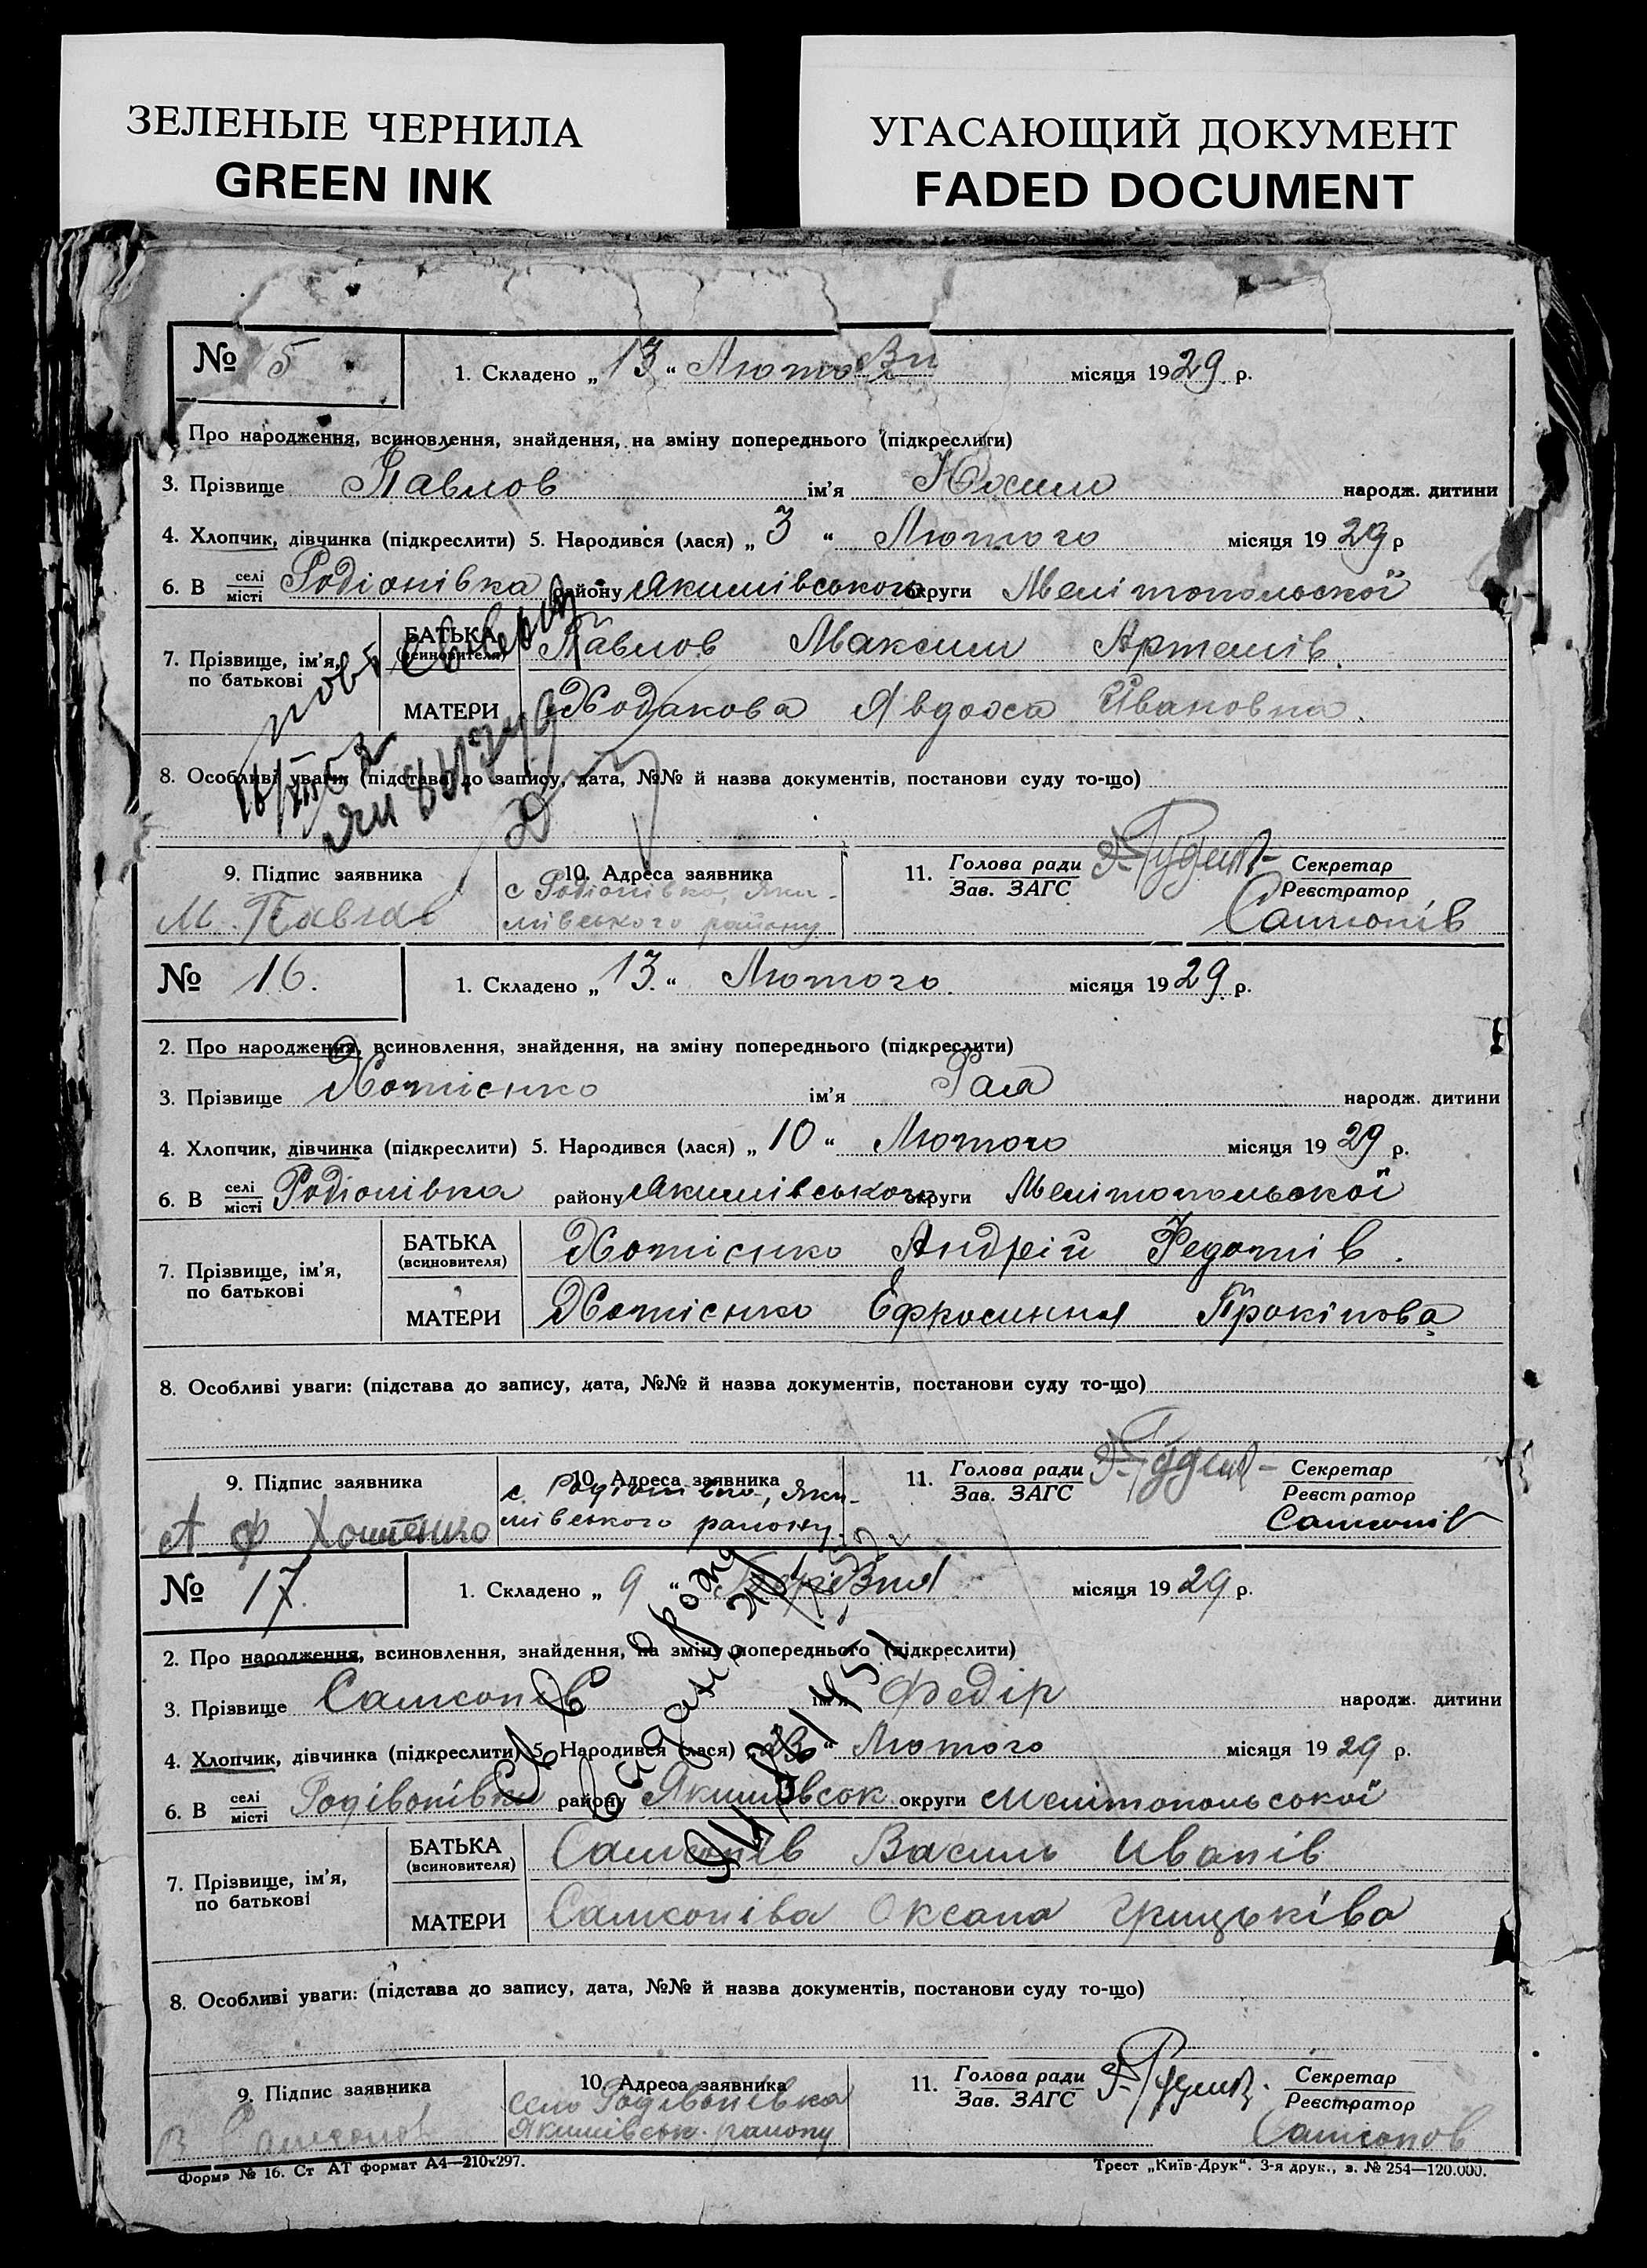 ЗЕЛЕНЫЕ ЧЕРНИЛА
GREEN INK
УГАСАЮЩИЙ ДОКУМЕНТ
FADED DOCUMENT
№ 15
1. Складено „ 13 “ Лютого місяця 1929 р.
Про народження, всиновлення, знайдення, на зміну попереднього (підкреслити)
3. Прізвище Павлов ім'я Юхим народж. дитини
4. Хлопчик, дівчинка (підкреслити) 5. Народився (лася) „ 3 “ Лютого місяця 1929 р
6. В селі місті Родіонівка району Якимівського округи Мелітопольскої
7. Прізвище, ім'я, по батькові
БАТЬКА (всиновителя) Павлов Максим Артемів.
МАТЕРИ Ходакова Явдоха Ивановна.
8. Особливі уваги: (підстава до запису, дата, №№ й назва документів, постанови суду то-що)
9. Підпис заявника
М. Павлов
10. Адреса заявника
с Родіонівка, Яки-
мівського району
11. Голова ради Зав. ЗАГС
Секретар Реєстратор
Самсонів
№ 16.
1. Складено „ 13. “ Лютого. місяця 1929 р.
2. Про народження, всиновлення, знайдення, на зміну попереднього (підкреслити)
3. Прізвище Хотієнко ім'я Рая народж. дитини
4. Хлопчик, дівчинка (підкреслити) 5. Народився (лася) „ 10 “ Лютого місяця 1929 р.
6. В селі місті Родіонівка району Якимівського округи Мелітопольської
7. Прізвище, ім'я, по батькові
БАТЬКА (всиновителя) Хотієнко Андрій Федотів.
МАТЕРИ Хотієнко Ефросиння Прокіпова
8. Особливі уваги: (підстава до запису, дата, №№ й назва документів, постанови суду то-що)
9. Підпис заявника
А Ф Хотенко
10. Адреса заявника
с. Родіонівка, Яки-
мівського району.
11. Голова ради Зав. ЗАГС
Секретар Реєстратор
Самсонів
№ 17.
1. Складено „ 9 “ Березня місяця 1929 р.
2. Про народження, всиновлення, знайдення, на зміну попереднього (підкреслити)
3. Прізвище Самсонів ім'я Федір народж. дитини
4. Хлопчик, дівчинка (підкреслити) 5. Народився (лася) „ 23 “ Лютого місяця 1929 р.
6. В селі місті Родівонівка району Якимовсок округи Мелітопольсокої
7. Прізвище, ім'я, по батькові
БАТЬКА (всиновителя) Самсонів Василь Иванів
МАТЕРИ Самсоніва Оксана Грицьківа
8. Особливі уваги: (підстава до запису, дата, №№ й назва документів, постанови суду то-що)
9. Підпис заявника
В Самсонов
10. Адреса заявника
село Родівонівка
Якимівськ. району
11. Голова ради Зав. ЗАГС
Секретар Реєстратор
Самсонов
Форма № 16. Ст АТ формат А4—210х297.
Трест „Київ-Друк“. 3-я друк., з. № 254—120.000.